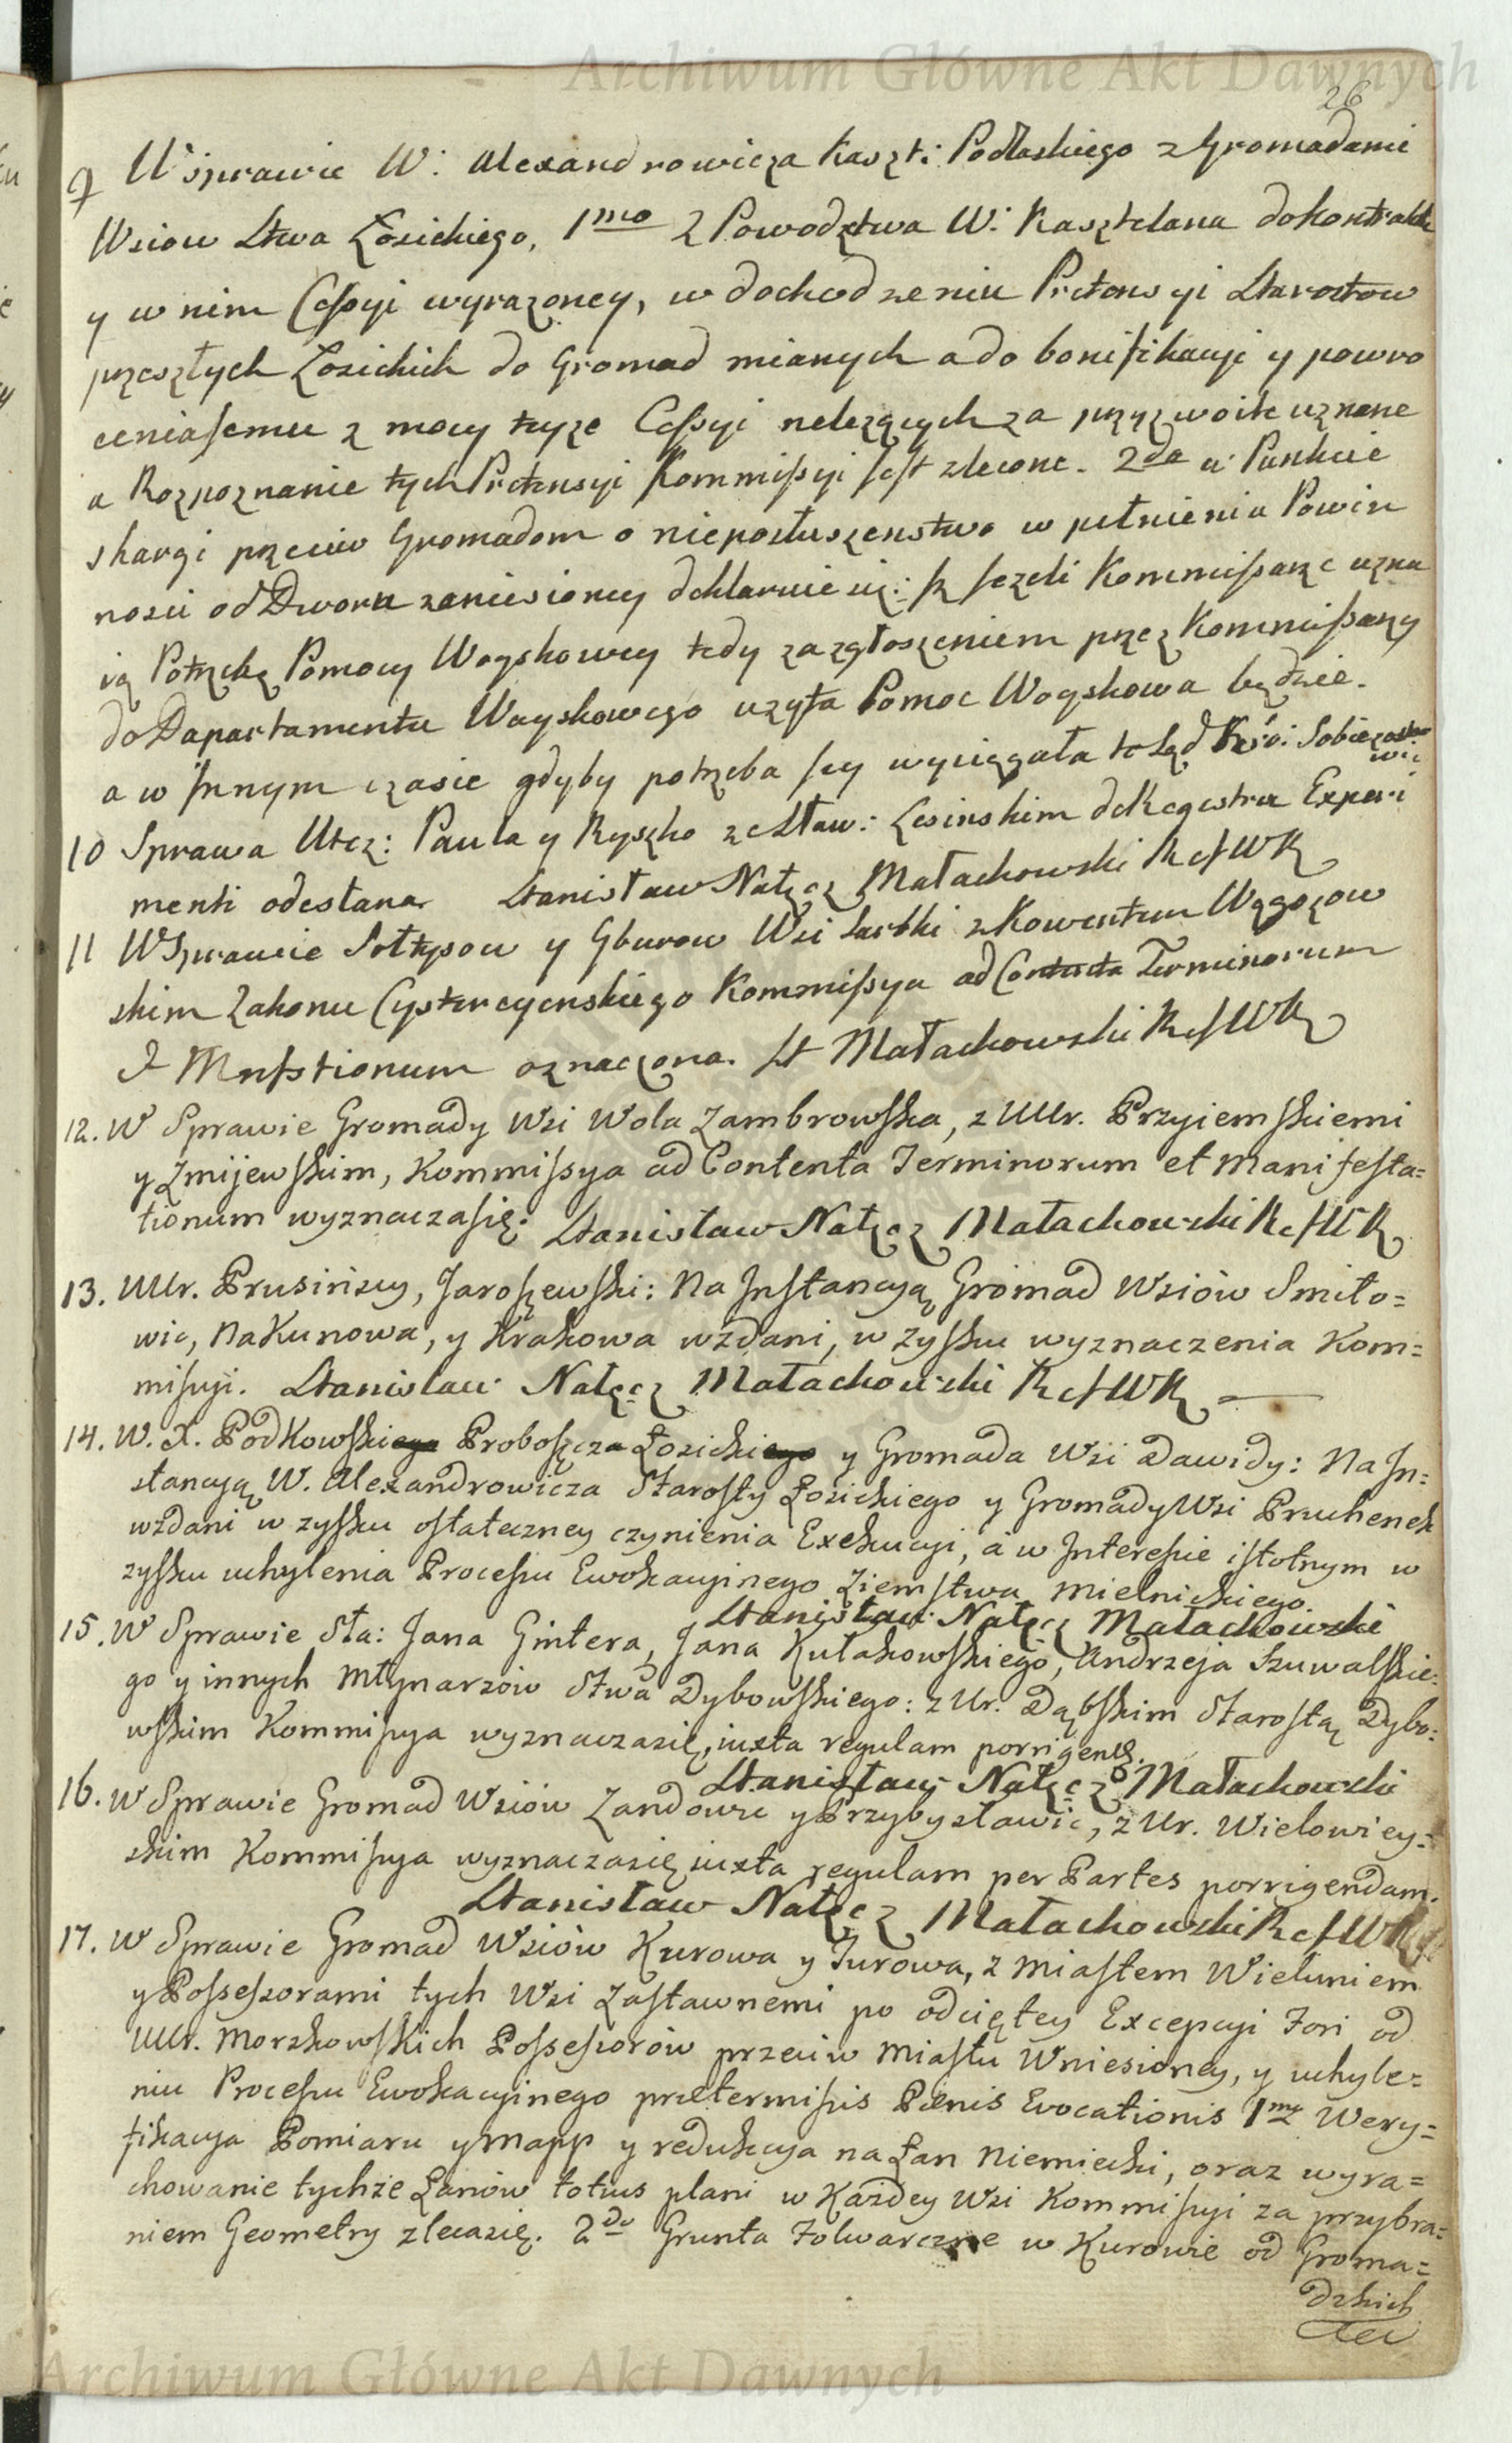 Archiwum Główne Akt Dawnych
26
9 W sprawie W: Alexandrowicza Kaszt: Podlaskiego z Gromadami
Wsiow Stwa Łosickiego, 1mo z Powodztwa W: Kasztelana do Kontraktu
y w nim Cessyi wyrazoney, w dochodzeniu Pretensyi Starostow
przeszłych Łosickich do Gromad mianych a do bonifikacyi y powro
cenia Jemu z mocy teyze Cessyi nalezących za przyzwoite uznane
a Rozpoznanie tych Pretensyi Kommissyi jest zlecone. 2do w Punkcie
skargi przeciw Gromadom o nieposłuszenstwo w pełnieniu Powin
nosci od Dworu zaniesioney deklaruie się: iz Jezeli Kommissarze uzna
ią Potrzebę Pomocy Woyskowey tedy za zgłoszeniem przez Kommissarzy
do Departamentu Woyskowego uzyta Pomoc Woyskowa będzie.
a w Innym czasie gdyby potrzeba jey wyciągała to Sąd Kró: Sobie zosta
wi:
10 Sprawa Ucz: Paula y Ryszko ze Sław: Lesinskim do Regestru Experi
menti odesłana. Stanisław Nałęcz Małachowski RefWK
11 W Sprawie Sołtysow y Gburow Wsi Sarbki z Konwentem Wągrow
skim Zakonu Cystercyenskiego Kommissya ad Contenta Terminorum
& Mnfstionum oznaczona. St Małachowski RefWK
12. W Sprawie Gromady Wsi Wola Zambrowska, z UUr. Przyiemskiemi
y Zmijewskim, Kommissya ad Contenta Terminorum et Manifesta=
tionum wyznacza się. Stanisław Nałęcz Małachowski RefWK
13. UUr. Prusińscy, Jaroszewski: Na Jnstancyą Gromad Wsiów Smiło=
wic, Nakunowa, y Krakowa wzdani, w zysku wyznaczenia Kom=
missyi. Stanisław Nałęcz Małachowski RefWK
14. W. X. Podkowski Proboszcz Łosicki y Gromada Wsi Dawidy: Na Jn=
stancyą W. Alexandrowicza Starosty Łosickiego y Gromady Wsi Pruchenek
wzdani w zysku ostateczney czynienia Exekucyi, a w Jnteressie istotnym w
zysku uchylenia Processu Ewokacyinego Ziemstwa Mielnickiego.
Stanisław Nałęcz Małachowski
15. W Sprawie Sła: Jana Gintera, Jana Kułakowskiego, Andrzeja Szuwalskie=
go y innych Młynarzów Stwa Dybowskiego: z Ur. Dąbskim Starostą Dybo=
wskim Kommissya wyznacza się, iuxta regulam porrigend.
Stanisław Nałęcz Małachowski
16. W Sprawie Gromad Wsiów Zandowic y Przybysławic, z Ur. Wielowiey=
skim Kommissya wyznacza się iuxta regulam per Partes porrigendam.
Stanisław Nałęcz Małachowski RefWK
17. W Sprawie Gromad Wsiów Kurowa y Turowa, z Miastem Wieluniem
y Possessorami tych Wsi Zastawnemi po odciętey Excepcyi Fori od
UUr. Morzkowskich Possessorów przeciw Miastu Wniesioney, y uchyle=
niu Processu Ewokacyinego prætermissis Pœnis Evocationis 1mo Wery=
fikacya Pomiaru y Mapp y redukcya na Łan Niemiecki, oraz wyra=
chowanie tychże Łanów totius plani w Każdey Wsi Kommissyi za przybra=
niem Geometry zleca się. 2do Grunta Folwarczne w Kurowie od Groma=
dzkich
Archiwum Główne Akt Dawnych